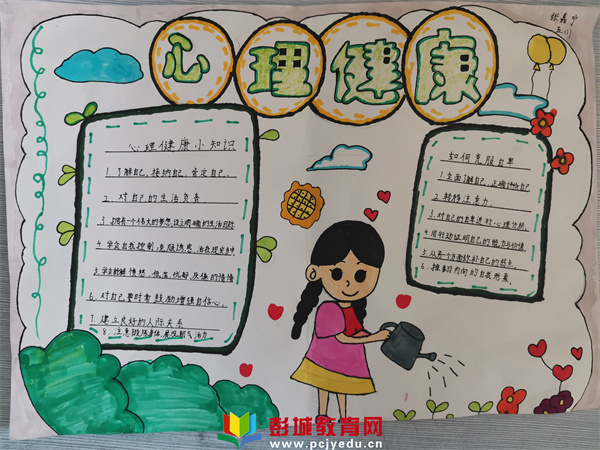 心理健康
张嘉
五川
心理健康小知识
1.了解自己、接纳自己、肯定自己。
2.对自己的生活负责
3.拥有一个伟大的梦想,设立明确的生活目标
4.学会自我控制,克服诱惑,活在现实中
5.学会能解愤怒、低落、忧郁、灰偏的情绪
6.对自己要时常鼓励增强自信心。
7.建立良好的人际关系
8.注意锻炼身体,展现朝气活力
如何克服自卑
1.全面了解自己,正确评价自己
2.转移注意力。
3.对自己的自卑进行心理分析。
4.用行动证明自己的能力与价值
5.从另一个方面弥补自己的弱点
6.推翻内向的自我形象。
彭城教育网
www.pcjyedu.cn